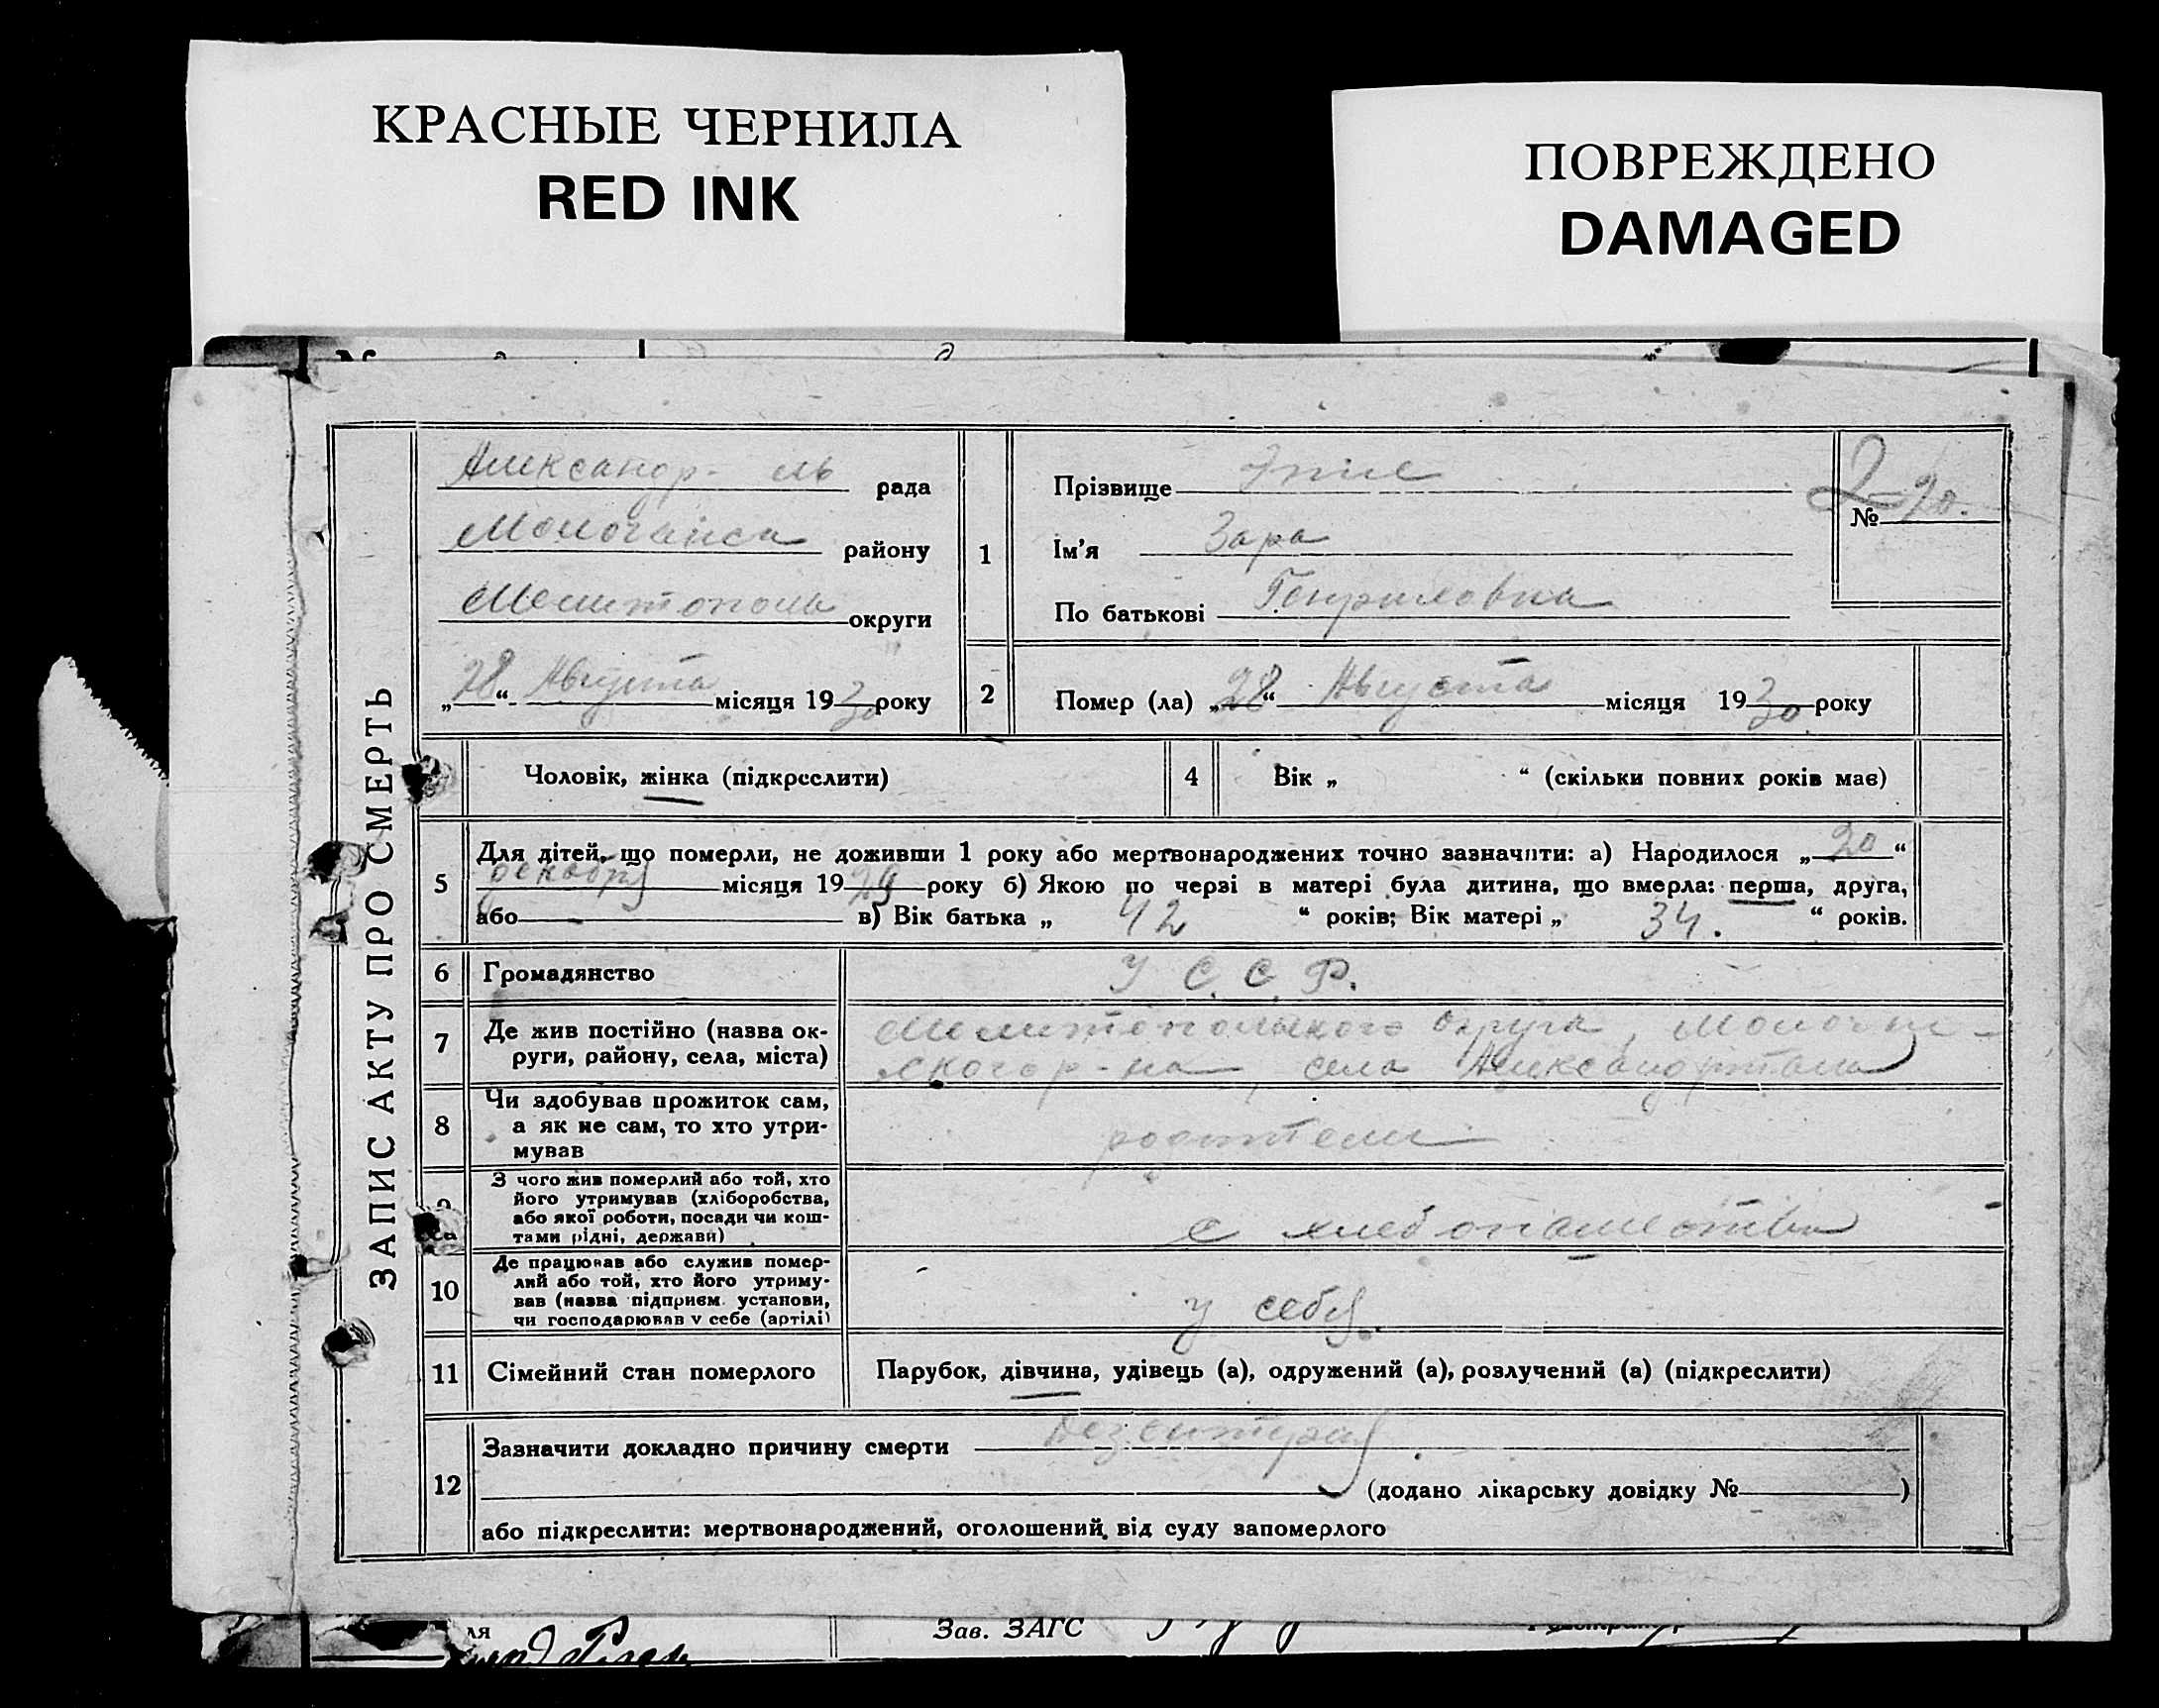 КРАСНЫЕ ЧЕРНИЛА
RED INK
ПОВРЕЖДЕНО
DAMAGED
ЗАПИС АКТУ ПРО СМЕРТЬ
Александр- ль рада
Молочанск району
Мелитополь округи
„28“ Августа місяця 1930 року
1
Прізвище
Ім’я Зара
По батькові Генриховна
№ 20.
2
Помер (ла) „28“ Августа місяця 1930 року
Чоловік, жінка (підкреслити)
4
Вік „ “ (скільки повних років має)
5
Для дітей, що померли, не доживши 1 року або мертвонароджених точно зазначити: а) Народилося „20“
декабря місяця 1929 року б) Якою по черзі в матері була дитина, що вмерла: перша, друга,
або — в) Вік батька „ 42 “ років; Вік матері „ 34. “ років.
6
Громадянство
У С. С. Р.
7
Де жив постійно (назва ок-
руги, району, села, міста)
Мелитопольского округа, Молочан-
ского р-на, села
8
Чи здобував прожиток сам,
а як не сам, то хто утри-
мував
родители
9
З чого жив померлий або той, хто
його утримував (хліборобства,
або якої роботи, посади чи кош-
тами рідні, держави)
с хлебопашества
10
Де працював або служив помер-
лий або той, хто його утриму-
вав (назва підприєм. установи,
чи господарював у себе (артілі)
у себя.
11
Сімейний стан померлого
Парубок, дівчина, удівець (а), одружений (а), розлучений (а) (підкреслити)
12
Зазначити докладно причину смерти Дезентерия
(додано лікарську довідку № )
або підкреслити: мертвонароджений, оголошений від суду запомерлого
ля
Зав. ЗАГС